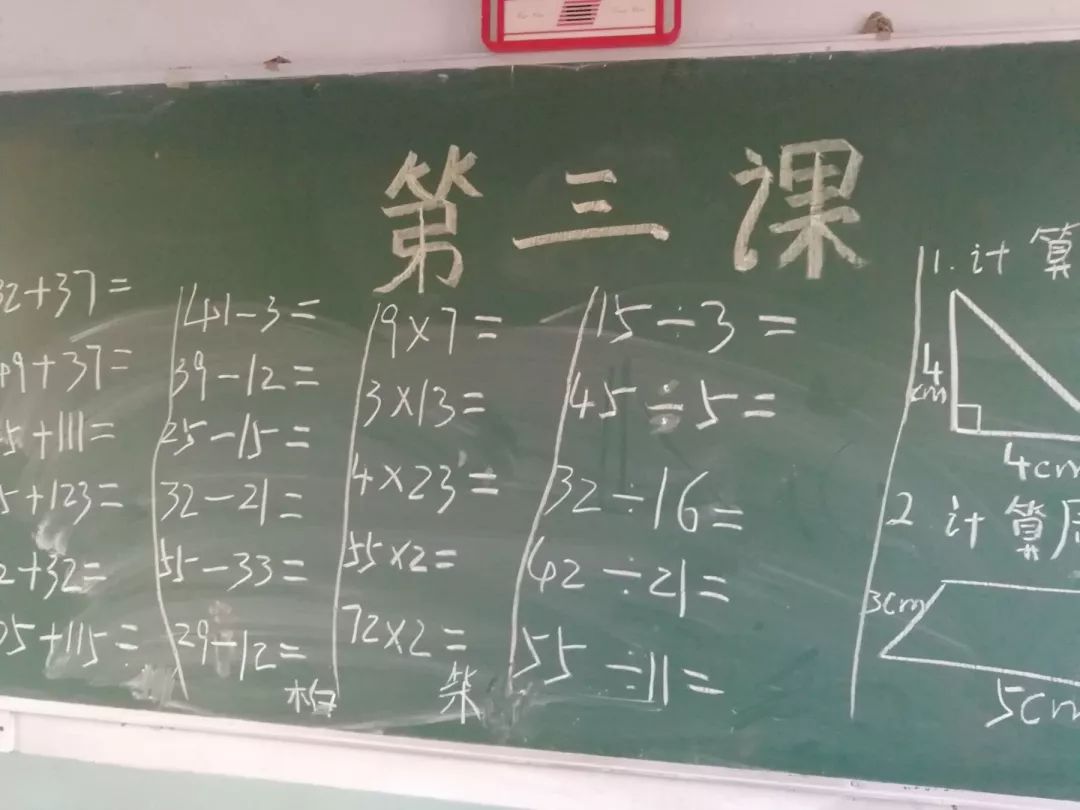 第三课
32+37=
49+37=
5+111=
5+123=
2+32=
05+115=
141-3=
39-12=
25-15=
32-21=
55-33=
29-12=
9×7=
3×13=
4×23=
55×2=
72×2=
15÷3=
45÷5=
32÷16=
42÷21=
55÷11=
1.计算
4
cm
4cm
2 计算
3cm
5cm